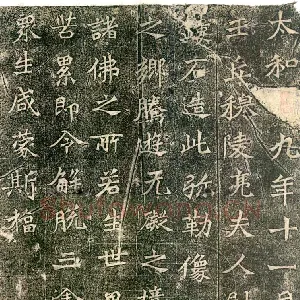 太和 九年十一月
王丘穆陵亮夫人尉
石造此弥勒像
之鄉騰遊无礙之境
諸佛之所若生世界
苦累即令解脫三塗
眾生咸蒙斯福